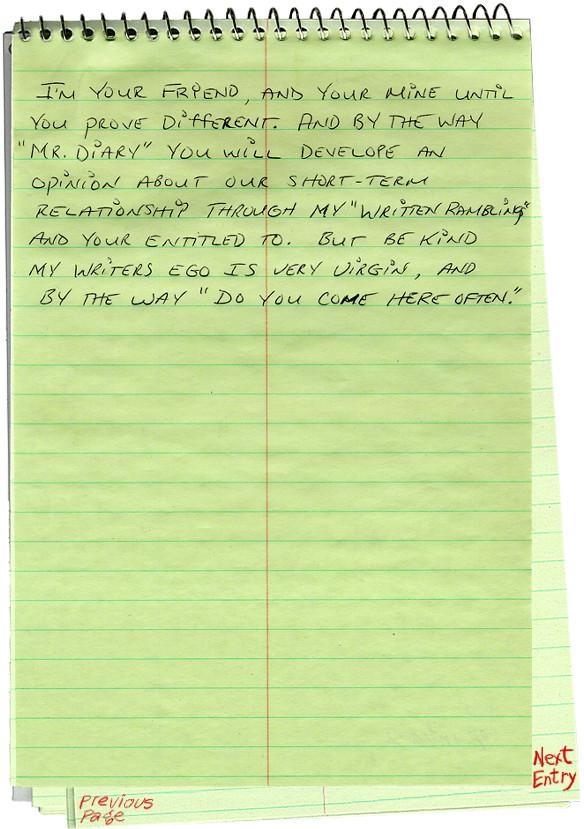 I'M YOUR FRIEND, AND YOUR MINE UNTIL
YOU PROVE DIFFERENT. AND BY THE WAY
"MR. DIARY" YOU WILL DEVELOPE AN
OPINION ABOUT OUR SHORT-TERM
RELATIONSHIP THROUGH MY "WRITTEN RAMBLING"
AND YOUR ENTITLED TO. BUT BE KIND
MY WRITERS EGO IS VERY VIRGIN, AND
BY THE WAY "DO YOU COME HERE OFTEN."
Next
Entry
Previous
Page